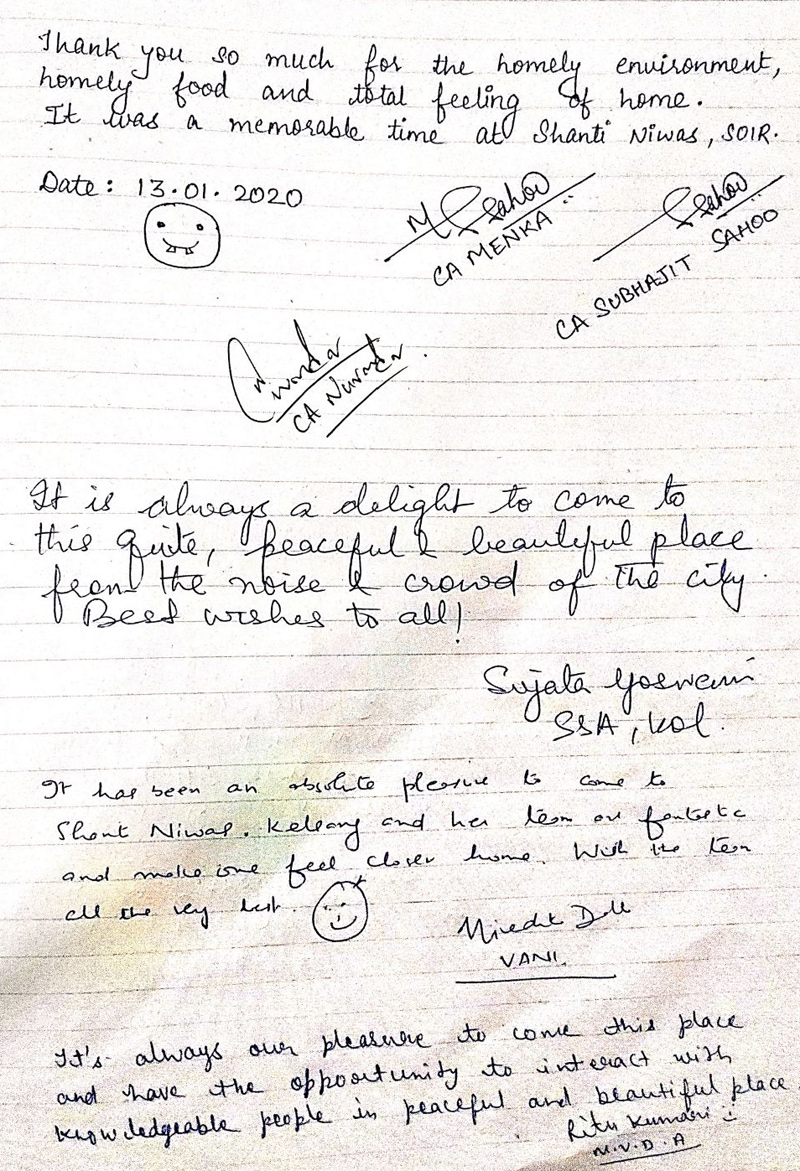 Thank you so much for the homely environment,
homely food and total feeling of home.
It was a memorable time at Shanti Niwas, SOIR.
Date: 13.01.2020
Sahoo
CA MENKA
Sahoo
CA SUBHAJIT SAHOO
CA
It is always a delight to come to
this quite, peaceful & beautiful place
from the noise & crowd of the city.
Best wishes to all!
Sujata Goswami
SSA, Kol.
It has been an absolute pleasure to come to
Shant Niwas. Kelsang and her team are fantastic
and make one feel closer home. With the team
all the very best.
VANI.
It's always our pleasure to come this place
and have the opportunity to interact with
knowledgeable people in peaceful and beautiful place.
Ritu Kumari
M.V.D.A